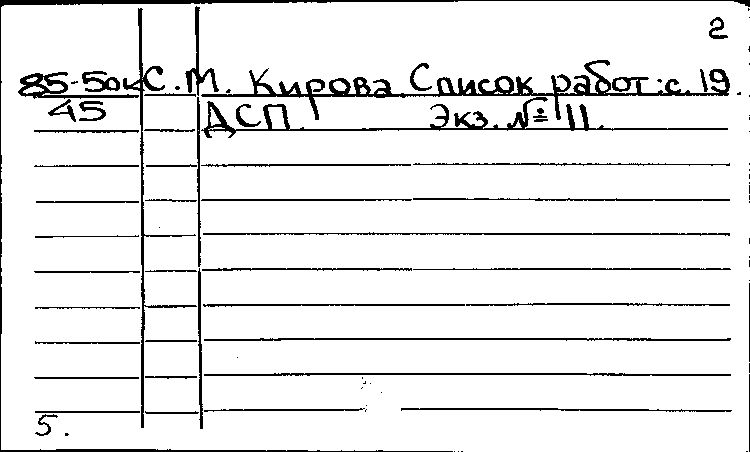 2
85-5ок С. М. Кирова. Список работ: с. 19.
45 ДСП. Экз. № 11.
5.